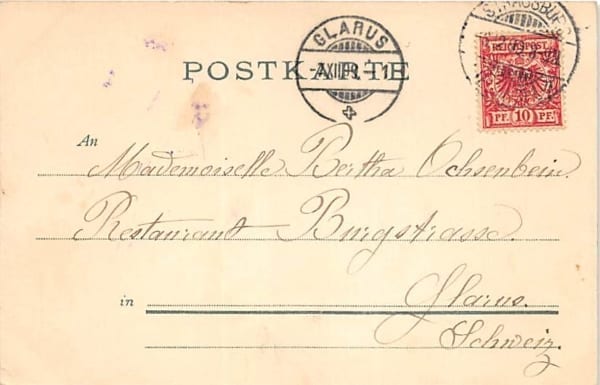 STRASSBURG
GLARUS
REICHSPOST
POSTKARTE
PF. 10 PF.
An
Mademoiselle Bertha Ochsenbein.
Restaurant Burgstrasse.
in
Glarus.
Schweiz.